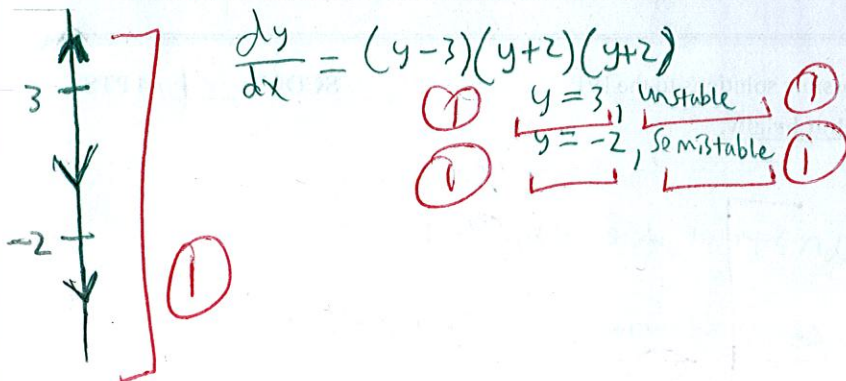 dy/dx = (y-3)(y+2)(y+2)
3
① y = 3, unstable ①
① y = -2, semistable ①
-2
①